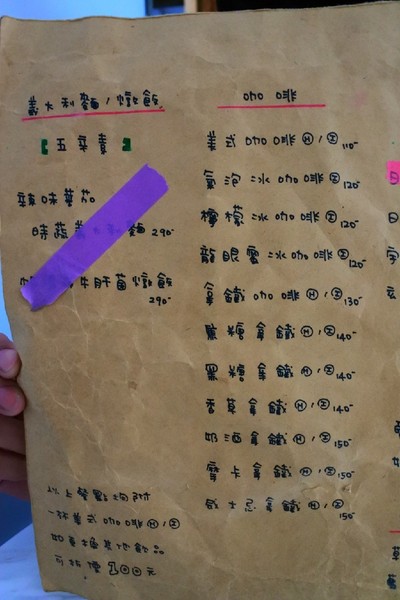 義大利麵/燉飯
【五辛素】
辣味蕃茄
時蔬義大利麵 290-
牛肝菌燉飯
290-
以上餐點均附
一杯美式咖啡Ⓗ/Ⓘ
如更換其他飲品
可折價100元
咖啡
美式咖啡Ⓗ/Ⓘ 110-
氣泡冰咖啡Ⓘ 120-
檸檬冰咖啡Ⓘ 120-
龍眼蜜冰咖啡Ⓘ 120-
拿鐵咖啡Ⓗ/Ⓘ 130-
焦糖拿鐵Ⓗ/Ⓘ 140-
黑糖拿鐵Ⓗ/Ⓘ 140-
香草拿鐵Ⓗ/Ⓘ 140-
奶酒拿鐵Ⓗ/Ⓘ 150-
摩卡拿鐵Ⓗ/Ⓘ 150-
威士忌拿鐵Ⓗ/Ⓘ 150-